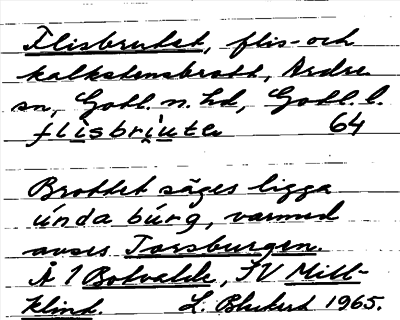 Flisbrutet, flis- och
kalkstensbrott, Ardre
sn, Gotl. n. hd, Gotl. l.
flisbriute 64
Brottet säges ligga
únda búrg, varmed
avses Torsburgen.
Å 1 Botvalde, IV Mill-
klint. L. 1965.